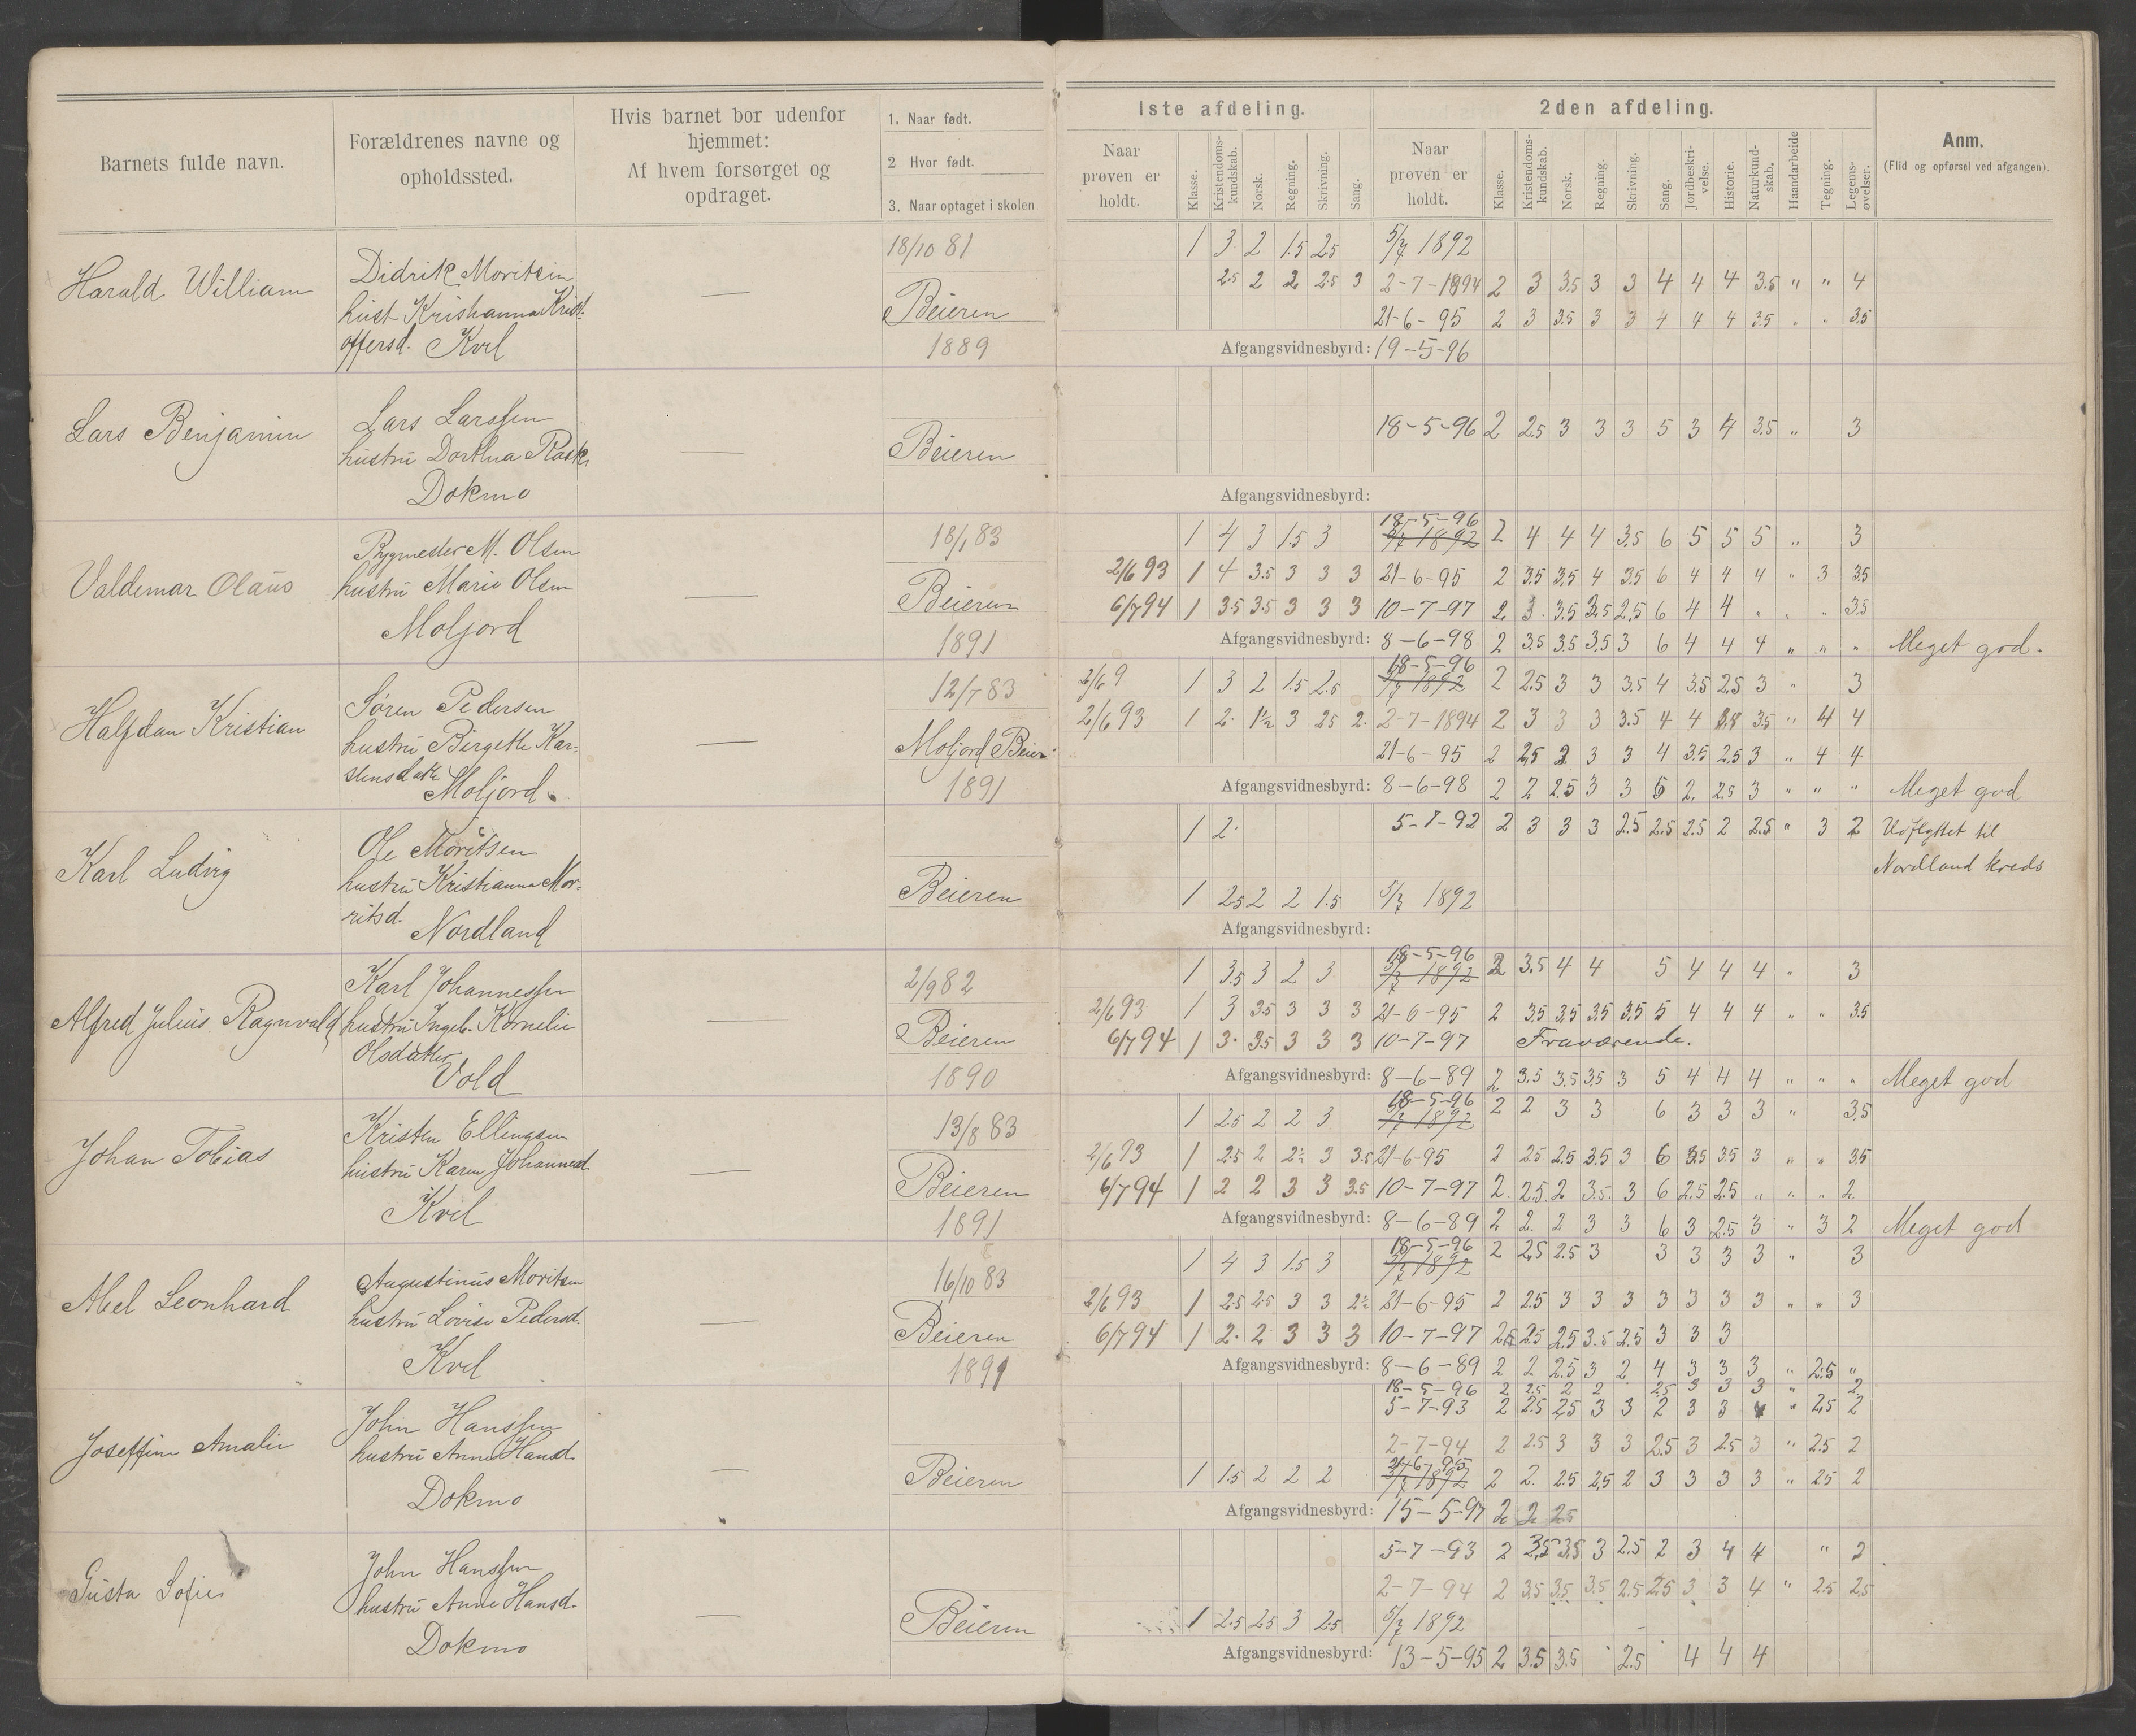 Barnets fulde navn.
Forældrenes navne og
opholdssted.
Hvis barnet bor udenfor
hjemmet:
Af hvem forsørget og
opdraget.
1. Naar født.
2 Hvor født.
3. Naar optaget i skolen
1ste afdeling.
Naar
prøven er
holdt.
Klasse.
Kristendoms-
kundskab.
Norsk.
Regning.
Skrivning.
Sang.
2den afdeling.
Naar
prøven er
holdt.
Klasse.
Kristendoms-
kundskab.
Norsk.
Regning.
Skrivning.
Sang.
Jordbeskri-
velse.
Historie.
Naturkund-
skab.
Haandarbeide
Tegning.
Legems-
øvelser.
Anm.
(Flid og opførsel ved afgangen).
Harald William
Didrik Moritsen
hust Kristianna Krist-
offersd. Kvel
—
18/10 81
Beieren
1889
1 3 2 1.5 2.5 5/7 1892
2.5 2 2 2.5 3 2-7-1894 2 3 3.5 3 3 4 4 4 3.5 " " 4
21-6-95 2 3 3.5 3 3 4 4 4 3.5 " " 3.5
Afgangsvidnesbyrd: 19-5-96
Lars Benjamin
Lars Larssen
hustru Dorthea Rask
Dokmo
—
Beieren
18-5-96 2 2.5 3 3 3 5 3 4 3.5 " 3
Afgangsvidnesbyrd:
Valdemar Olaus
Bygmester M. Olsen
hustru Marie Olsen
Moljord
—
18/1 83
Beieren
1891
18-5-96
1 4 3 1.5 3 5/7 1892 2 4 4 4 3.5 6 5 5 5 " 3
2/6 93 1 4 3.5 3 3 3 21-6-95 2 3.5 3.5 4 3.5 6 4 4 4 " 3 3.5
6/7 94 1 3.5 3.5 3 3 3 10-7-97 2 3. 3.5 3.5 2.5 6 4 4 " " " 3.5
Afgangsvidnesbyrd: 8-6-98 2 3.5 3.5 3.5 3 6 4 4 4 " " " Meget god.
Halfdan Kristian
Søren Pedersen
hustru Birgette Kar-
stensdatter
Moljord
—
12/7 83
Moljord Beier
1891
18-5-96
2/6 9 1 3 2 1.5 2.5 5/7 1892 2 2.5 3 3 3.5 4 3.5 2.5 3 " 3
2/6 93 1 2. 1½ 3 2.5 2. 2-7-1894 2 3 3 3 3.5 4 4 3.8 3.5 " 4 4
21-6-95 2 2.5 2 3 3 4 3.5 2.5 3 " 4 4
Afgangsvidnesbyrd: 8-6-98 2 2 2.5 3 3 5 2. 2.5 3 " " " Meget god
Karl Ludvig
Ole Moritsen
hustru Kristianna Mor-
ritsd.
Nordland
Beieren
1 2. 5-7-92 2 3 3 3 2.5 2.5 2.5 2 2.5 " 3 2 Udflyttet til
Nordland kreds
1 2.5 2 2 1.5 5/7 1892
Afgangsvidnesbyrd:
Alfred Julius Ragnvald
Karl Johannessen
hustru Ingeb. Kornelie
Olsdatter
Vold
—
2/9 82
Beieren
1890
18-5-96
1 3.5 3 2 3 5/7 1892 2 3.5 4 4 5 4 4 4 " 3
2/6 93 1 3 3.5 3 3 3 21-6-95 2 3.5 3.5 3.5 3.5 5 4 4 4 " " 3.5
6/7 94 1 3. 3.5 3 3 3 10-7-97 Fraværende.
Afgangsvidnesbyrd: 8-6-89 2 3.5 3.5 3.5 3 5 4 4 4 " " " Meget god
Johan Tobias
Kristen Ellingsen
hustru Karen Johannesd.
Kvel
—
13/8 83
Beieren
1891
18-5-96
1 2.5 2 2 3 5/7 1892 2 2 3 3 6 3 3 3 " 3.5
2/6 93 1 2.5 2 2½ 3 3.5 21-6-95 2 2.5 2.5 3.5 3 6 3.5 3.5 3 " " 3.5
6/7 94 1 2 2 3 3 3.5 10-7-97 2. 2.5 2 3.5. 3 6 2.5 2.5 " " " 2.
Afgangsvidnesbyrd: 8-6-89 2 2. 2 3 3 6 3 2.5 3 " 3 2 Meget god
Abel Leonhard
Augustinus Moritsen
hustru Lovise Pedersd.
Kvel
—
16/10 83
Beieren
1891
18-5-96
1 4 3 1.5 3 5/7 1892 2 2.5 2.5 3 3 3 3 3 " 3
2/6 93 1 2.5 2.5 3 3 2½ 21-6-95 2 2.5 3 3 3 3 3 3 3 " " 3
6/7 94 1 2. 2 3 3 3 10-7-97 2.5 2.5 2.5 3.5 2.5 3 3 3
Afgangsvidnesbyrd: 8-6-89 2 2 2.5 3 2 4 3 3 3 " 2.5 "
Joseffine Amalie
John Hanssen
hustru Anne Hansd.
Dokmo
—
Beieren
18-5-96 2 2.5 2 2 2.5 3 3 3 " 2
5-7-93 2 2.5 2.5 3 3 2 3 3 4 " 2.5 2
2-7-94 2 2.5 3 3 3 2.5 3 2.5 3 " 2.5 2
21-6-95
1 1.5 2 2 2 5/7 1892 2 2. 2.5 2.5 2 3 3 3 3 " 2.5 2
Afgangsvidnesbyrd: 15-5-97 2 2 2.5
Gusta Sofie
John Hanssen
hustru Anne Hansd.
Dokmo
—
Beieren
5-7-93 2 3.5 3.5 3 2.5 2 3 4 4 " 2
2-7-94 2 3.5 3.5 3.5 2.5 2.5 3 3 4 " 2.5 2.5
1 2.5 2.5 3 2.5 5/7 1892
Afgangsvidnesbyrd: 13-5-95 2 3.5 3.5 2.5 4 4 4